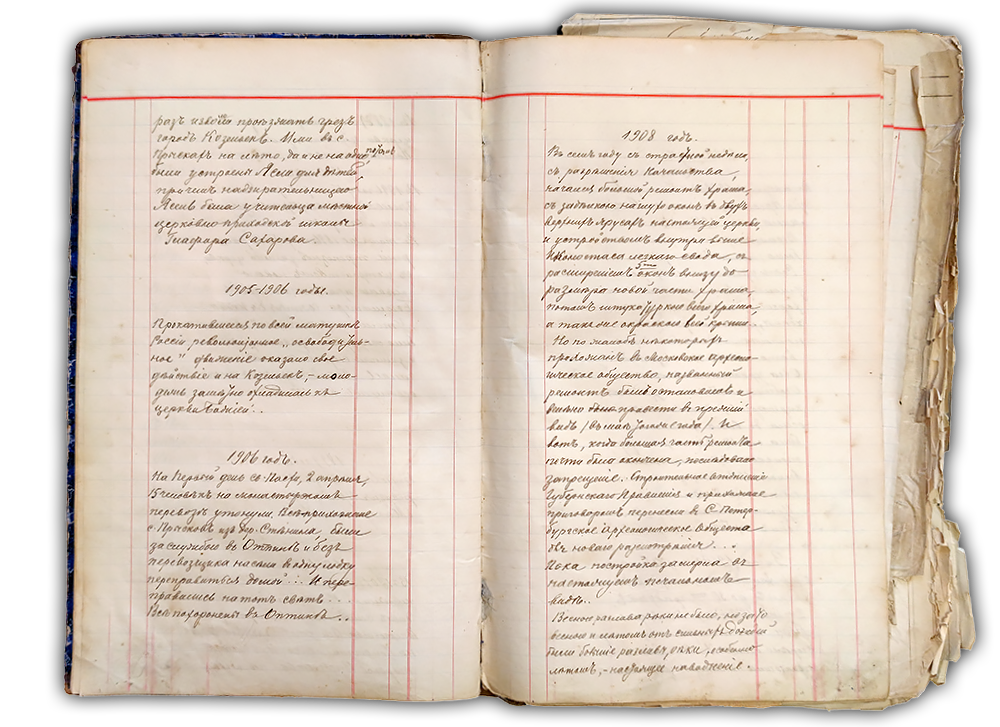 разъ изволя проѣзжать чрезъ
городъ Козельскъ. Ими въ с.
Прыскахъ на лѣто, да и не на одно, подолгу
были устроены Ясли для дѣтей,
при чемъ надзирательницею
Яслей была учительница мѣстной
церковно приходской школы
Глафира Сахарова.
1905-1906 годы.
Прокатившееся по всей матушкѣ
Россіи революціонное „освободитель-
ное" движеніе оказало свое
дѣйствіе и на Козельскъ, - моло-
дежь замѣтно охладилась къ
церкви Божіей...
1906 годъ.
На первый день св. Пасхи, 2 апрѣля,
15 человѣкъ на монастырскомъ
перевозѣ утонули. Всѣ прихожане
с. Прысковъ изъ дер. Стениной, были
за службою въ Оптиной и безъ
перевозщика насѣли въ одну лодку
переправиться домой... И пере-
правились на тотъ свѣтъ...
Всѣ похоронены въ Оптиной...
1908 годъ.
Въ семъ году съ страстной недѣли,
съ разрѣшенія Начальства,
начался большой ремонтъ храма,
съ задѣлкою наглухо оконъ въ двухъ
верхнихъ ярусахъ настоящей церкви,
и устройствомъ внутри выше
Иконостаса легкаго свода, съ
расширеніемъ 5ти оконъ внизу до
размѣра новой части храма,
потомъ штукатуркою всего храма,
а также окраскою всей крыши.
Но по жалобѣ нѣкоторыхъ
прихожанъ въ Московское Архео-
логическое общество, названный
ремонтъ былъ остановленъ и
велѣно было привести въ прежній
видъ / въ маѣ того же года /. И
вотъ, когда большая часть ремонта
почти была окончена, послѣдовало
запрещеніе. Строительное отдѣленіе
Губернскаго Правленія и прихожане
приговоромъ перенесли въ С. Петер-
бургское Археологическое Общество
дѣло новаго разсмотрѣнія....
Пока постройка замерла въ
настоящемъ печальномъ
видѣ..
Весною разлива рѣки не было, но за то
весною и лѣтомъ отъ сильныхъ дождей
были большіе разливы рѣки, особенно
лѣтомъ, - настоящее наводненіе.